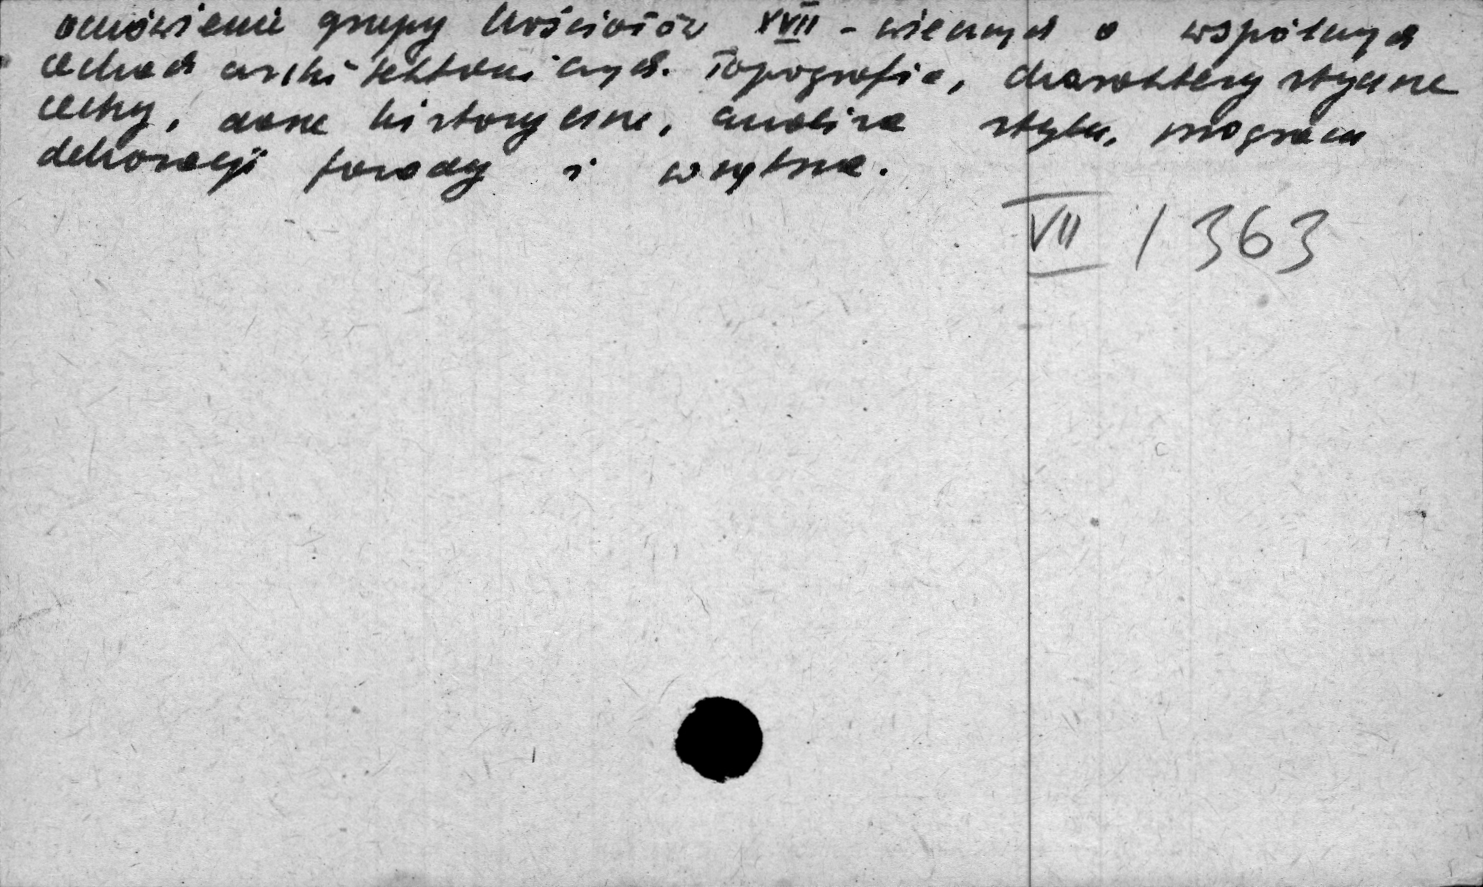 omówienie grupy kościołów XVII-wiecznych o wspólnych
cechach architektonicznych. Topografia, charakterystyczne
cechy, dane historyczne, analiza stylu, program
dekoracji fasady i wnętrza.
VII / 363